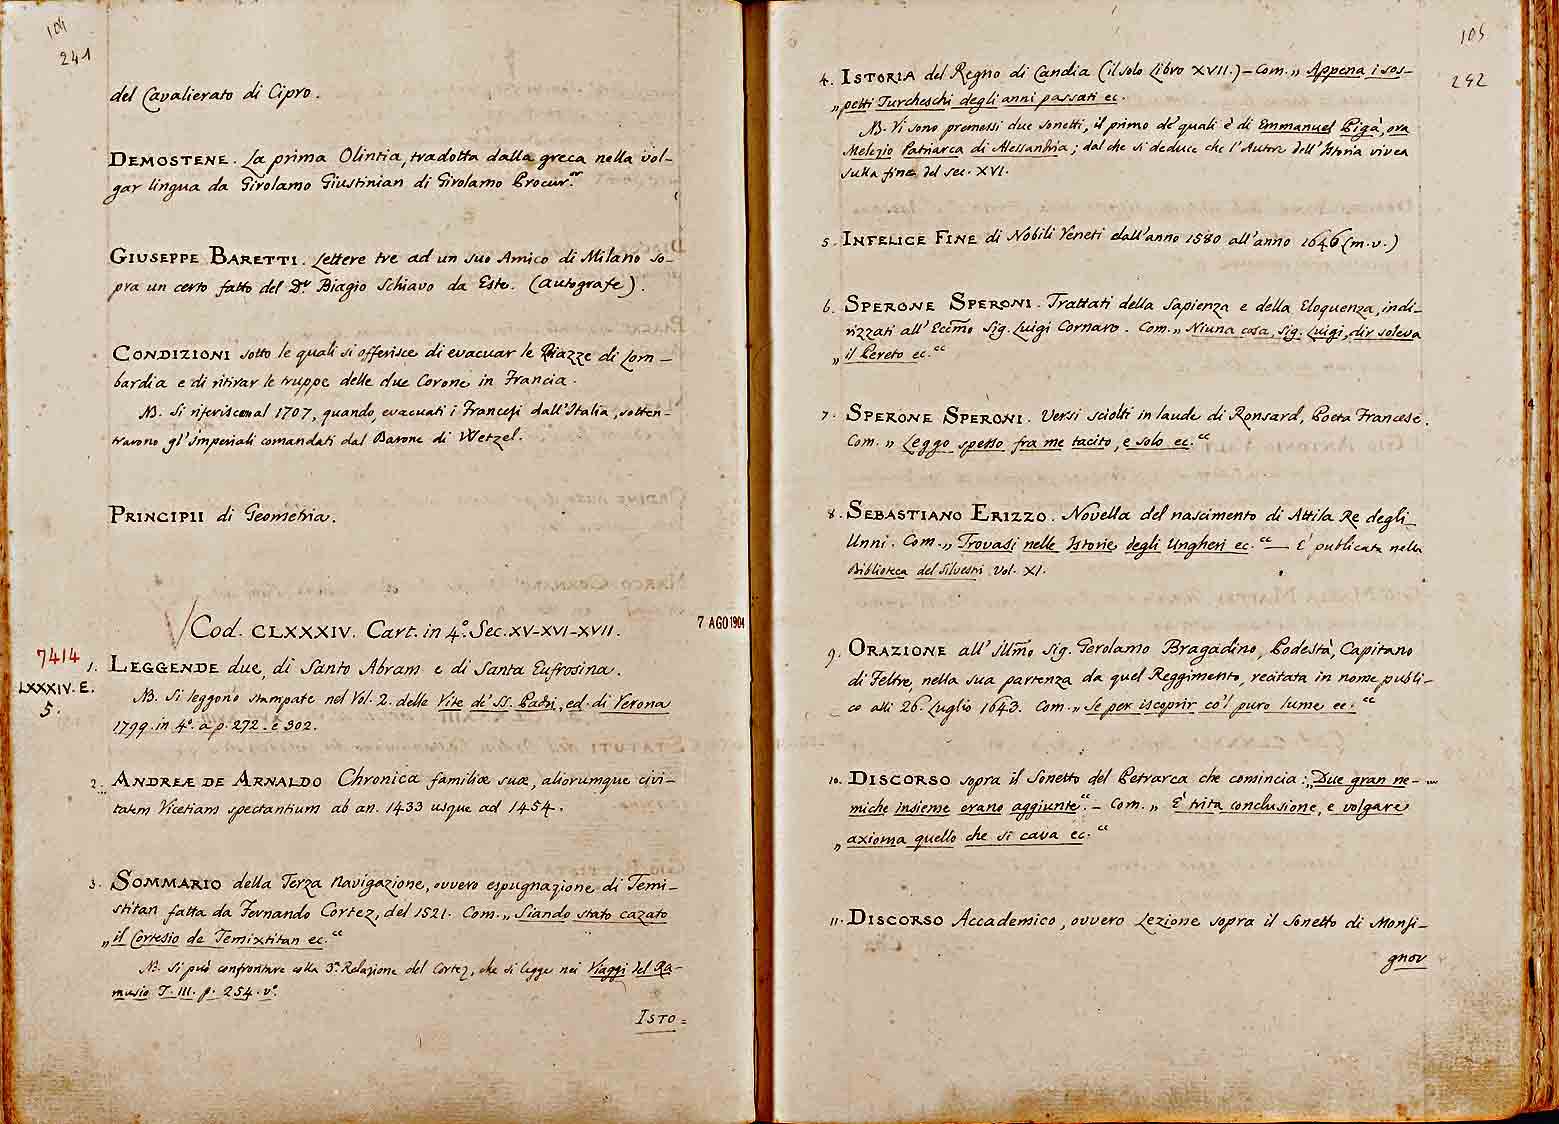 104
241
del Cavalierato di Cipro.
DEMOSTENE. La prima Olintia, tradotta dalla greca nella vol-
gar lingua da Girolamo Giustinian di Girolamo Procur.or
GIUSEPPE BARETTI. Lettere tre ad un suo Amico di Milano so-
pra un certo fatto del Dr. Biagio Schiavo da Este. (autografe).
CONDIZIONI sotto le quali si offerisce di evacuar le Piazze di Lom-
bardia e di ritirar le truppe delle due Corone in Francia.
NB. Si riferiscono al 1707, quando, evacuati i Francesi dall'Italia, sotten-
trarono gl'Imperiali comandati dal Barone di Wetzel.
PRINCIPII di Geometria.
Cod. CLXXXIV. Cart. in 4.° Sec. XV-XVI-XVII.
7 AGO 1904
7414
LXXXIV. E.
5.
1. LEGGENDE due, di Santo Abram e di Santa Eufrosina.
NB. Si leggono stampate nel Vol. 2. delle Vite de' SS. Padri, ed. di Verona
1799. in 4.° a p. 272. e 302.
2. ANDREÆ DE ARNALDO Chronica familiæ suæ, aliorumque civi-
tatem Vicetiam spectantium ab an. 1433 usque ad 1454.
3. SOMMARIO della Terza Navigazione, ovvero espugnazione di Temi-
stitan fatta da Fernando Cortez, del 1521. Com. „ Siando stato cazato
„ il Cortesio de Temixtitan ec. “
NB. Si può confrontare colla 3.a Relazione del Cortez, che si legge nei Viaggi del Ra-
musio T. III. p. 254. v.°
ISTO=
105
242
4. ISTORIA del Regno di Candia (il solo Libro XVII.) – Com. „ Appena i sos-
„ petti Turcheschi degli anni passati ec.
NB. Vi sono premessi due Sonetti, il primo de' quali è di Emmanuel Pigà, ora
Melezio Patriarca di Alessandria; dal che si deduce che l'Autore dell'Istoria vivea
sulla fine del sec. XVI.
5. INFELICE FINE di Nobili Veneti dall'anno 1580 all'anno 1646 (m. v.)
6. SPERONE SPERONI. Trattati della Sapienza e della Eloquenza, indi-
rizzati all'Eccmo Sig. Luigi Cornaro. Com. „ Niuna cosa, Sig. Luigi, dir soleva
„ il Pereto ec. “
7. SPERONE SPERONI. Versi sciolti in laude di Ronsard, Poeta Francese.
Com. „ Leggo spesso fra me tacito, e solo ec. “
8. SEBASTIANO ERIZZO. Novella del nascimento di Attila Re degli
Unni. Com. „ Trovasi nelle Istorie degli Ungheri ec. “ — E' publicata nella
Biblioteca del Silvestri Vol. XI.
9. ORAZIONE all'Illmo Sig. Gerolamo Bragadino, Podestà, Capitano
di Feltre, nella sua partenza da quel Reggimento, recitata in nome publi-
co alli 26. Luglio 1643. Com. „ Se per iscoprir co'l puro lume ec. “
10. DISCORSO sopra il Sonetto del Petrarca che comincia: „ Due gran ne-
miche insieme erano aggiunte “. – Com. „ E' trita conclusione, e volgare
„ axioma quello che si cava ec. “
11. DISCORSO Accademico, ovvero Lezione sopra il Sonetto di Monsi-
gnor